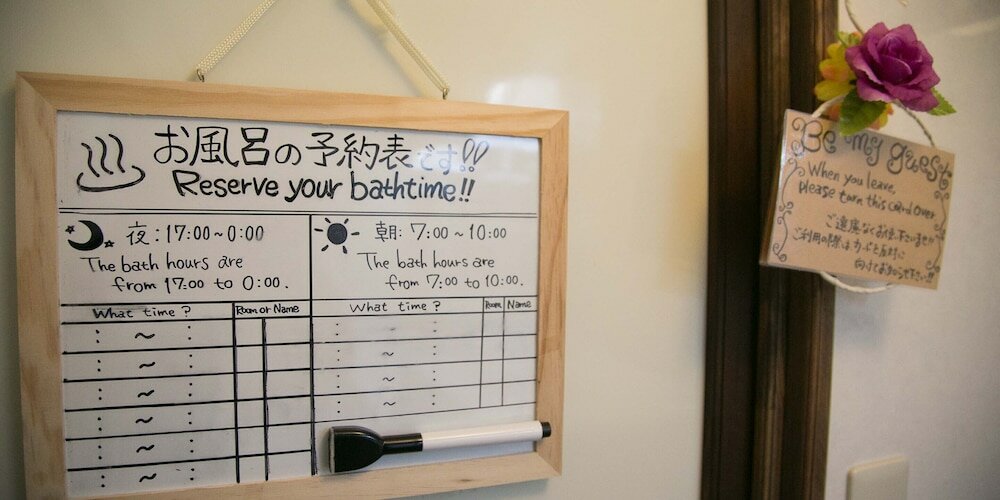 お風呂の予約表です!!
Reserve your bathtime!!
夜:17:00~0:00
The bath hours are
from 17:00 to 0:00.
What time? Room or Name
: ~ :
: ~ :
: ~ :
: ~ :
: ~ :
: ~ :
朝:7:00~10:00
The bath hours are
from 7:00 to 10:00.
What time? Room Name
: ~ :
: ~ :
: ~ :
: ~ :
Be my guest
When you leave,
please turn this card over
ご遠慮なくお使い下さいませ!!
ご利用の際はカードを反対に
向けてお知らせ下さい!!